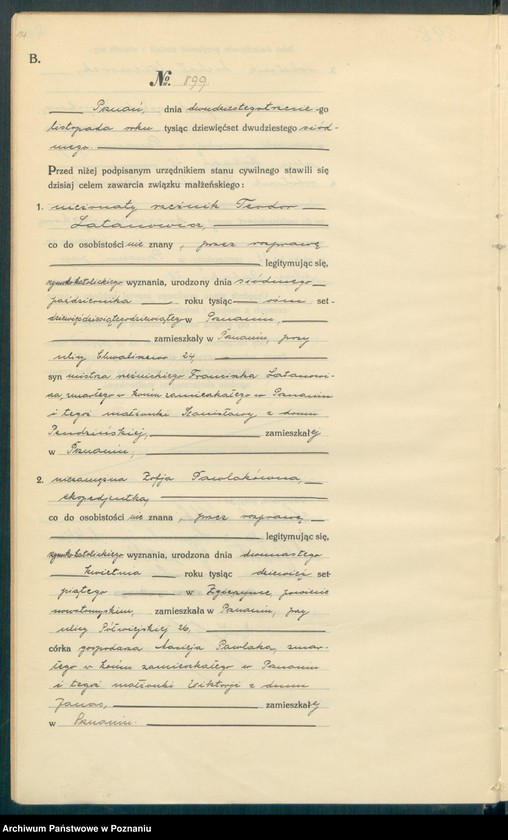 B.
№ 899
Poznań, dnia dwudziestegotrzeciego
listopada roku tysiąc dziewięćset dwudziestego siód-
mego.
Przed niżej podpisanym urzędnikiem stanu cywilnego stawili się
dzisiaj celem zawarcia związku małżeńskiego:
1. nieżonaty rzeźnik Teodor
Latanowicz,
co do osobistości nie znany, przez rozprawę
legitymując się,
rzymskokatolickiego wyznania, urodzony dnia siódmego
października roku tysiąc ośm set-
dziewięćdziesiątegodziewiątego w Poznaniu,
zamieszkały w Poznaniu, przy
ulicy Chwaliszewo 24,
syn mistrza rzeźnickiego Franciszka Latanowi-
cza, zmarłego w końcu zamieszkałego w Poznaniu
i tegoż małżonki Stanisławy z domu
Pendzińskiej, zamieszkałej
w Poznaniu,
2. niezamężna Zofja Pawlakówna,
ekspedjentka,
co do osobistości nie znana, przez rozprawę
legitymując się,
rzymskokatolickiego wyznania, urodzona dnia dwunastego
kwietnia roku tysiąc dziewięć set-
piątego w powiecie
nowotomyskim, zamieszkała w Poznaniu, przy
ulicy Półwiejskiej 26,
córka gospodarza Macieja Pawlaka, zmar-
łego w końcu zamieszkałego w Poznaniu
i tegoż małżonki Wiktorji z domu
Janas, zamieszkałej
w Poznaniu.
Archiwum Państwowe w Poznaniu